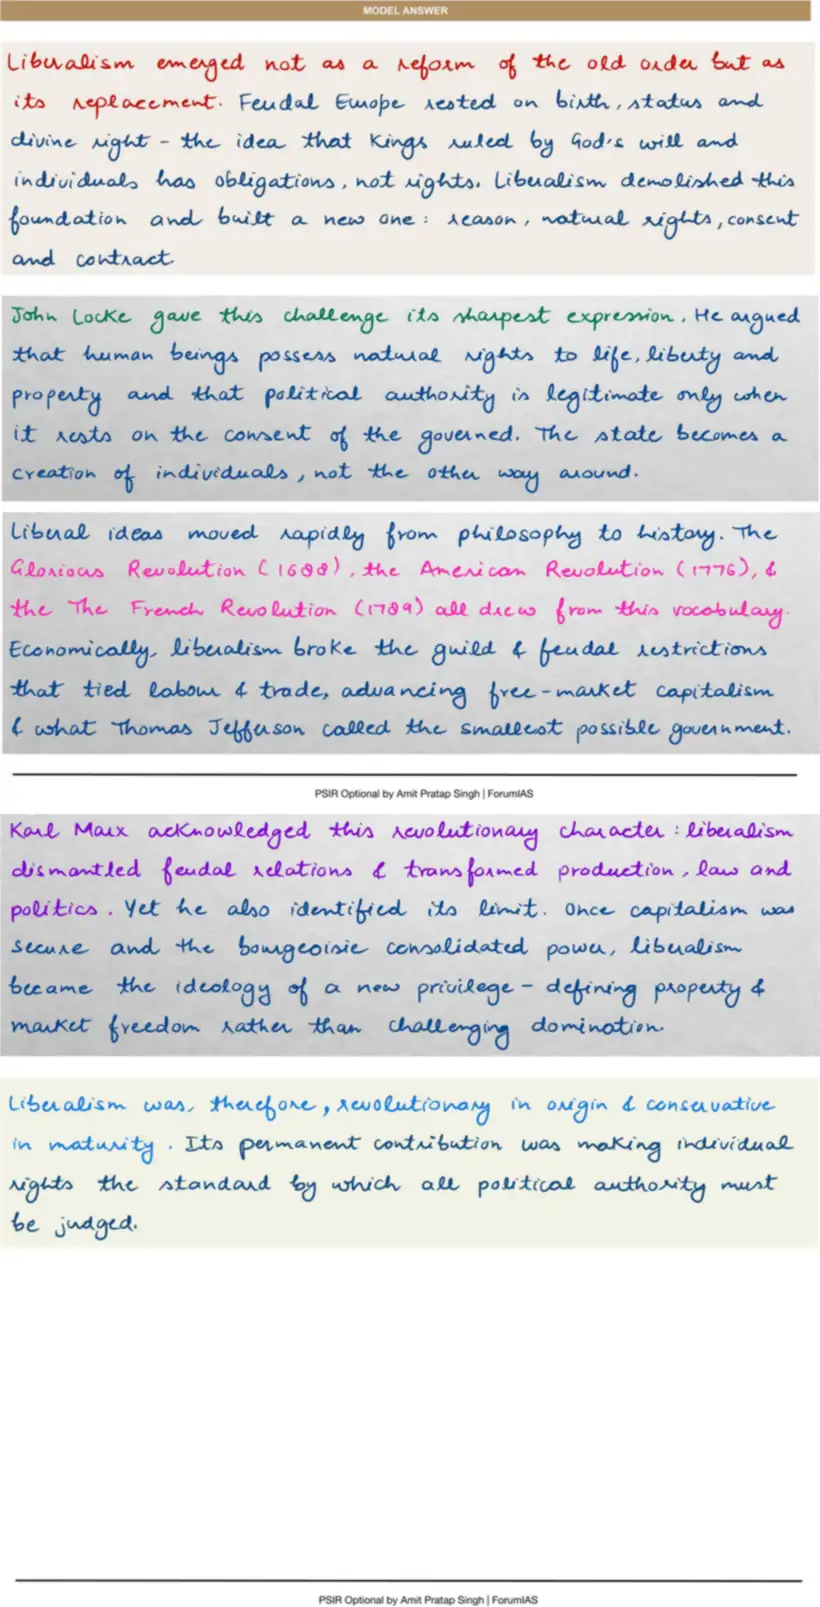 MODEL ANSWER
Liberalism emerged not as a reform of the old order but as
its replacement. Feudal Europe rested on birth, status and
divine right - the idea that Kings ruled by God's will and
individuals has obligations, not rights. Liberalism demolished this
foundation and built a new one : reason, natural rights, consent
and contract
John Locke gave this challenge its sharpest expression. He argued
that human beings possess natural rights to life, liberty and
property and that political authority is legitimate only when
it rests on the consent of the governed. The state becomes a
creation of individuals, not the other way around.
Liberal ideas moved rapidly from philosophy to history. The
Glorious Revolution (1688), the American Revolution (1776), &
the The French Revolution (1789) all drew from this vocabulary.
Economically, liberalism broke the guild & feudal restrictions
that tied labour & trade, advancing free-market capitalism
& what Thomas Jefferson called the smallest possible government.
PSIR Optional by Amit Pratap Singh | ForumIAS
Karl Marx acknowledged this revolutionary character : liberalism
dismantled feudal relations & transformed production, law and
politics. Yet he also identified its limit. Once capitalism was
secure and the bourgeoisie consolidated power, liberalism
became the ideology of a new privilege - defining property &
market freedom rather than challenging domination.
Liberalism was, therefore, revolutionary in origin & conservative
in maturity. Its permanent contribution was making individual
rights the standard by which all political authority must
be judged.
PSIR Optional by Amit Pratap Singh | ForumIAS